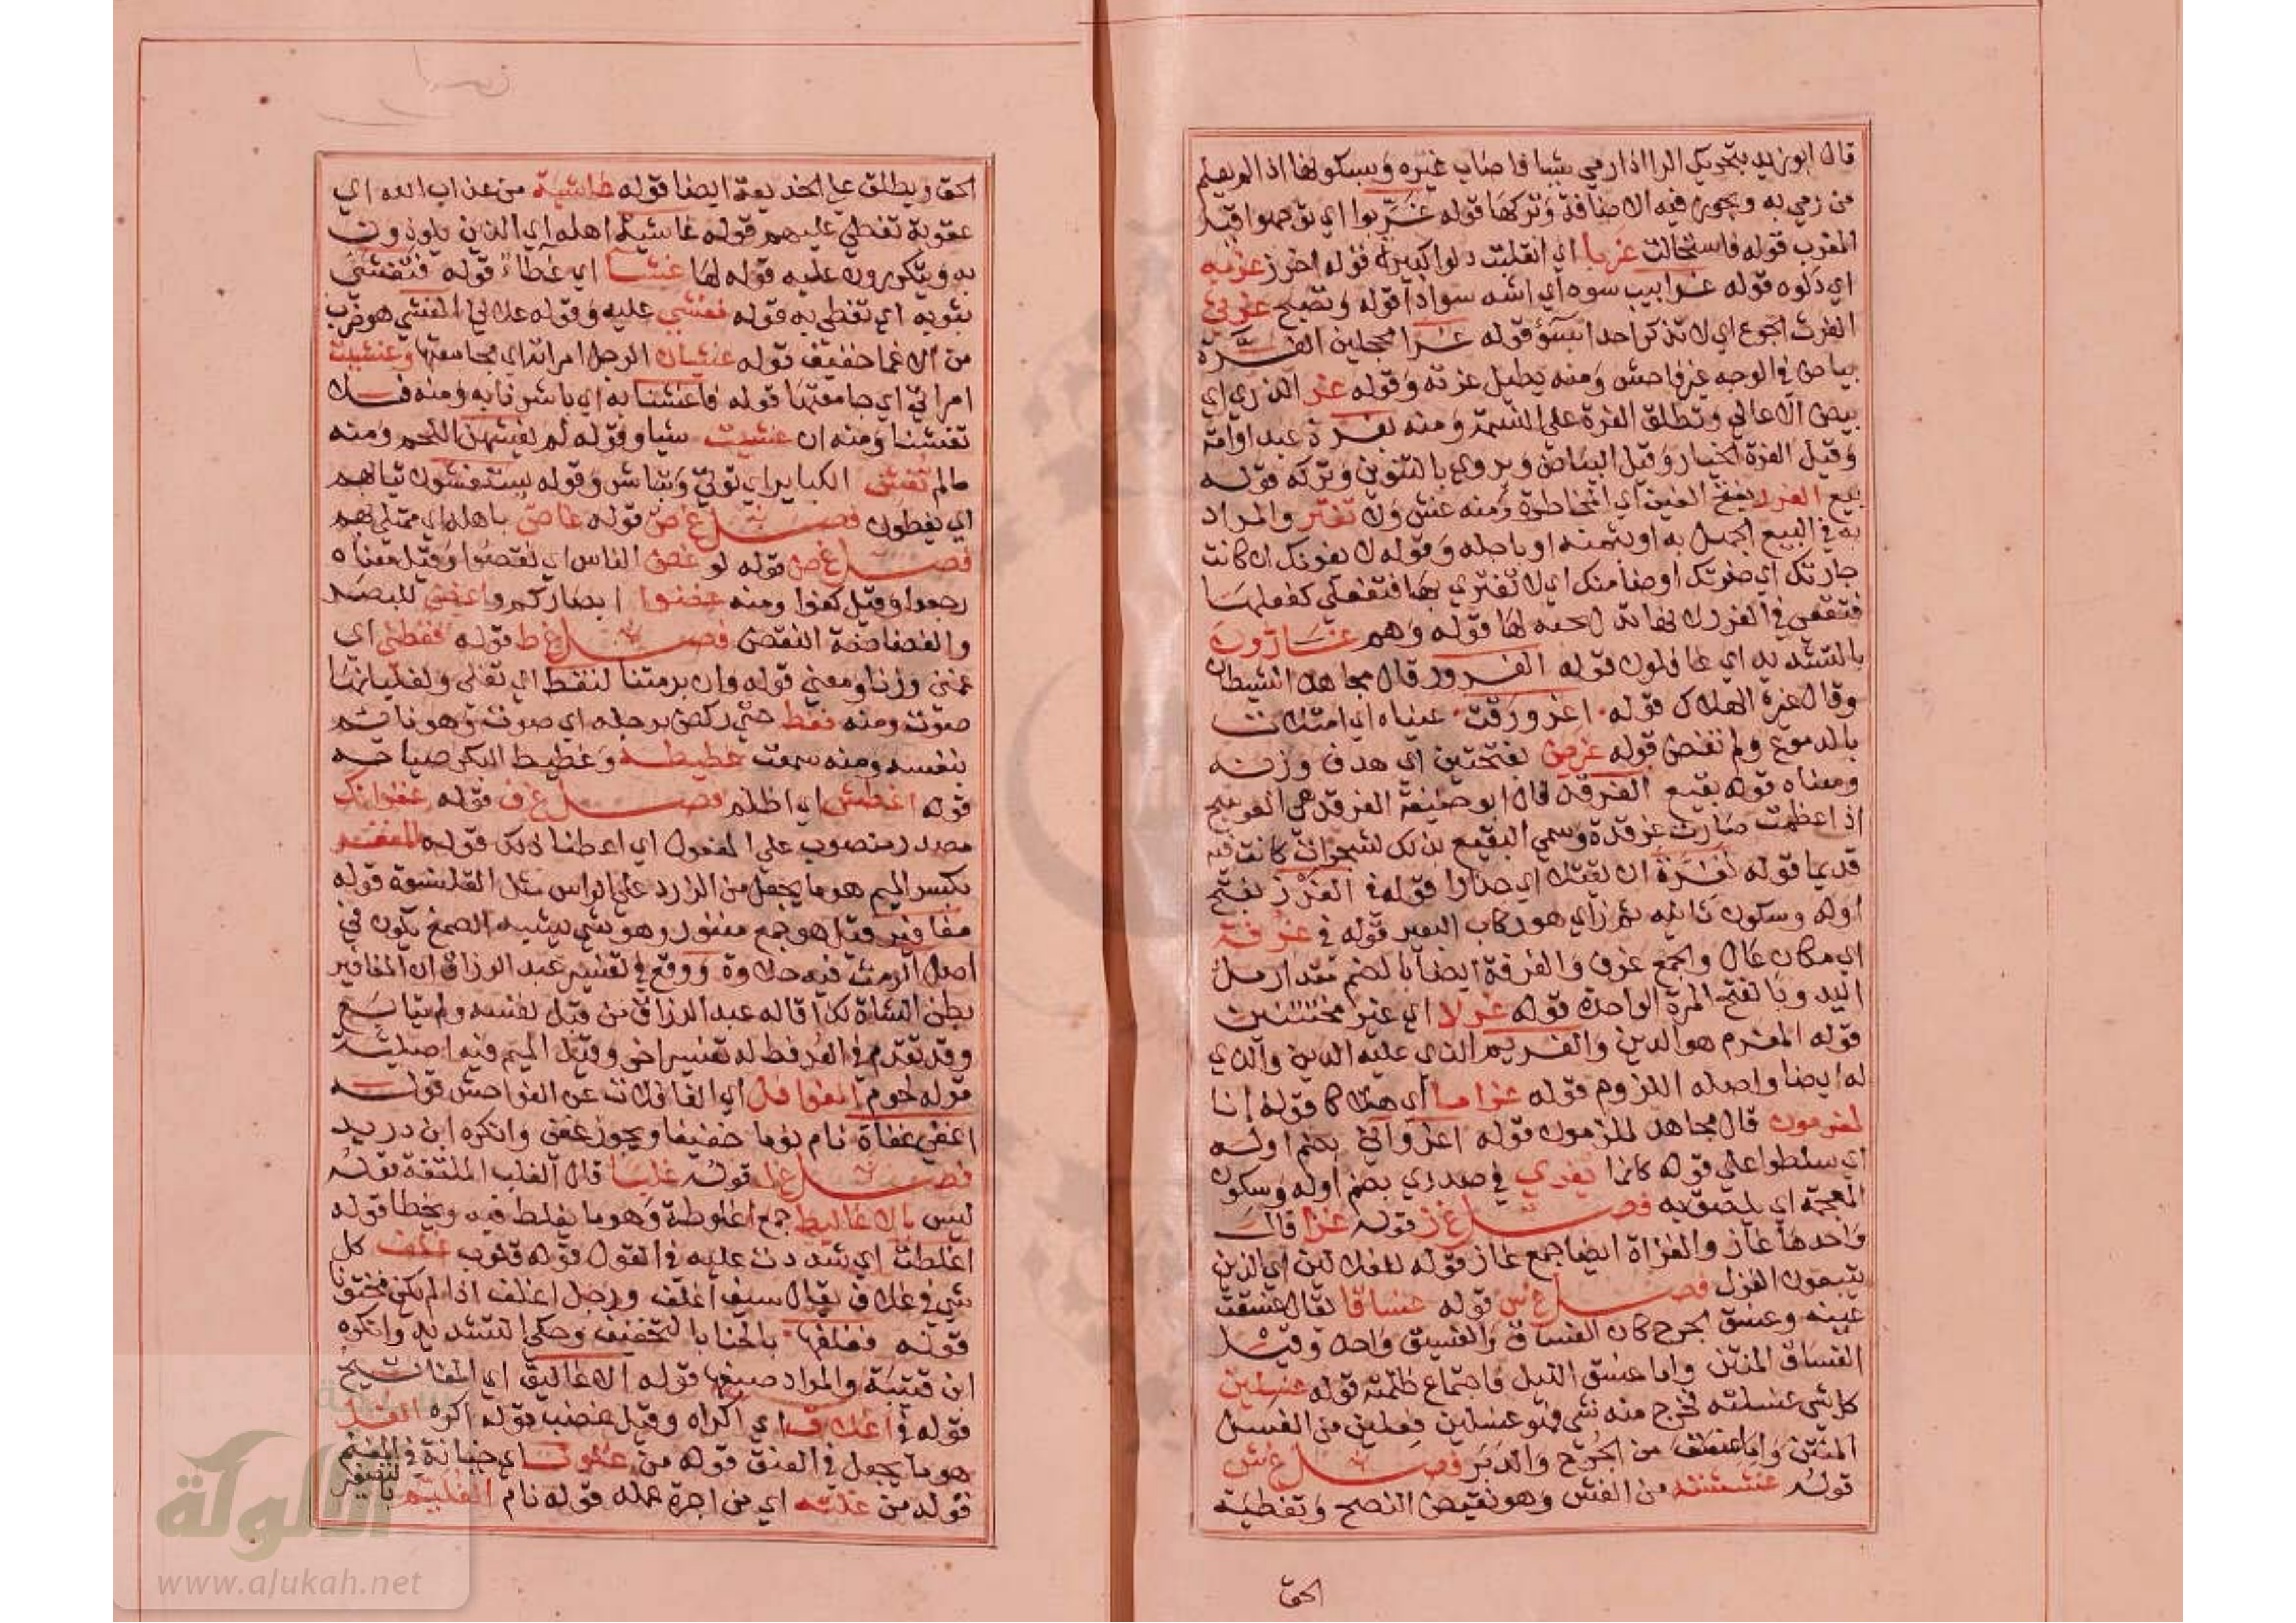 قال ابو زيد بتحريك الرا اذا رمي شيا فاصاب غيره وبسكونها اذا لم يعلم
من رمي به ويجوز فيه الاضافة وتركها قوله غربوا اي توجهوا قبل
المغرب قوله فاستحالت غربا اي انقلبت دلوا كبيرة قوله اخرز غربه
اي دلوه قوله غرابيب سود اي اشد سوادا قوله وتصبح غرثي
الغرث الجوع اي لا تذكر احدا بسؤ قوله غرا محجلين الغرة
بياض في الوجه غير فاحش ومنه يطيل غرته وقوله غر الذري اي
بيض الاعالي وتطلق الغرة علي النسمة ومنه بغرة عبد او امة
وقيل الغرة الخيار وقيل البياض ويروي بالتنوين وتركه قوله
بيع الغرر بفتح الغين اي المخاطرة ومنه غش ولا تغتر والمراد
به في البيع الجهل به او بثمنه او باجله وقوله لا يغرنك ان كانت
جارتك اي ضرتك اوضأ منك اي لا تغتري بها فتفعلي كفعلها
فتقعي في الغرر لانها تدل لحبه لها قوله وهم غارون
بالتشديد اي غافلون قوله الغرور قال مجاهد الشيطان
وقال غيره الهلاك قوله اغرورقت عيناه اي امتلات
بالدموع ولم تفض قوله غرض بفتحتين اي هدف وزنه
ومعناه قوله بقيع الغرقد قال ابو حنيفة الغرقد هي العوسج
اذا عظمت صارت غرقدة وسمي البقيع بذلك لشجرات كانت فيه
قديما قوله تغرة ان يقتلا اي حذارا قوله في الغرز بفتح
اوله وسكون ثانيه ثم زاي هو ركاب البعير قوله في غرفة
اي مكان عال والجمع غرف والغرفة ايضا بالضم مقدار ملأ
اليد وبالفتح المرة الواحدة قوله غرلا اي غير مختتنين
قوله المغرم هو الدين والغريم الذي عليه الدين والذي
له ايضا واصله اللزوم قوله غراما اي هلاكا قوله انا
لمغرمون قال مجاهد لملزمون قوله اغروا بي بضم اوله
اي سلطوا علي قوله كانما يغري في صدري بضم اوله وسكون
المعجمة اي يلصق به فصل غ ز قوله غزا قال
واحدها غاز والغزاة ايضا جمع غاز قوله للغزالين اي الذين
يتبعون الغزل فصل غ س قوله غساقا يقال غسقت
عينه وغسق الجرح كان الغساق والغسيق واحد وقيل
الغساق المنتن واما غسق الليل فاجتماع ظلمته قوله غسلين
كل شي غسلته فخرج منه شي فهو غسلين فعلين من الغسل
من الجرح والدبر فصل غ ش
قوله من الغش وهو نقيض النصح وتغطية
الحق
الحق ويطلق علي الخديعة ايضا قوله غاشية من عذاب الله اي
عقوبة تغطي عليهم قوله غاشية اهله اي الذين يلوذون
به ويتكررون عليه قوله لها غشا اي غطاء قوله فتغشي
بثوبه اي تغطي به قوله فغشي عليه وقوله علاني الغشي هو ضرب
من الاغما خفيف قوله غشيان الرجل امراته اي مجامعتها وغشيت
امراتي اي جامعتها قوله فاغشنا به اي باشرنا به ومنه فلا
تغشنا ومنه ان غشيت شيا وقوله لم يغشهن اللحم ومنه
مالم تغش الكباير اي توتي وتباشر وقوله يستغشون ثيابهم
اي يغطون فصل غ ص قوله غاص باهله اي ممتلي بهم
فصل غ ض قوله لو غض الناس اي نقصوا وقيل معناه
رجعوا وقيل كفوا ومنه غضوا ابصاركم واغض للبصر
والغضاضة النقص فصل غ ط قوله فغطني اي
غمني وزنا ومعني قوله وان برمتنا لتغط اي تغلي ولغليانها
صوت ومنه فغط حتي ركض برجله اي صوت وهو نايم
بنفسه ومنه سمعت غطيطه وغطيط البكر صياحه
قوله اغطش اي اظلم فصل غ ف قوله غفرانك
مصدر منصوب علي المفعول اي اعطنا ذلك قوله المغفر
بكسر الميم هو ما يجعل من الزرد علي الراس مثل القلنسوة قوله
مغافير قيل هو جمع مغفور وهو شي يشبه الصمغ يكون في
اصل الرمث فيه حلاوة ووقع في تفسير عبد الرزاق ان المغافير
بطن الشاة كذا قاله عبد الرزاق من قبل نفسه ولم يتابع
وقد تقدم في العرفط له تفسير اخر وقيل الميم فيه اصلية
قوله لحوم الغوافل اي الغافلات عن الفواحش قوله
اغفي اغفاة نام نوما خفيفا ويجوز غفي وانكره ابن دريد
فصل غ ل قوله غلبا قال الغلب الملتفة قوله
ليس بالاغاليط جمع اغلوطة وهو ما يغلط فيه ويخطا قوله
اغلظت اي شددت عليه في القول قوله قلوب غلف كل
شي في غلاف يقال سيف اغلف ورجل اغلف اذا لم يكن مختونا
قوله فغلفها بالحنا بالتخفيف وحكي التشديد وانكره
ابن قتيبة والمراد صبغها قوله الاغاليق اي المفاتيح
قوله في اغلاق اي اكراه وقيل غضب قوله اكره الغل
هو ما يجعل في العنق قوله من غلول اي خيانة في المغنم
قوله من غلته اي من اجرة عمله قوله نام الغليم بالتصغير
الألوكة
www.alukah.net